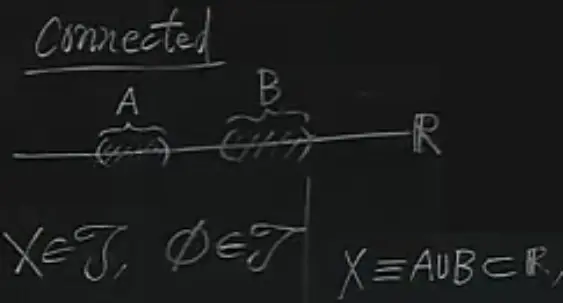 Connected
A B
ℝ
X∈𝒯, ∅∈𝒯 X≡A∪B⊂ℝ,